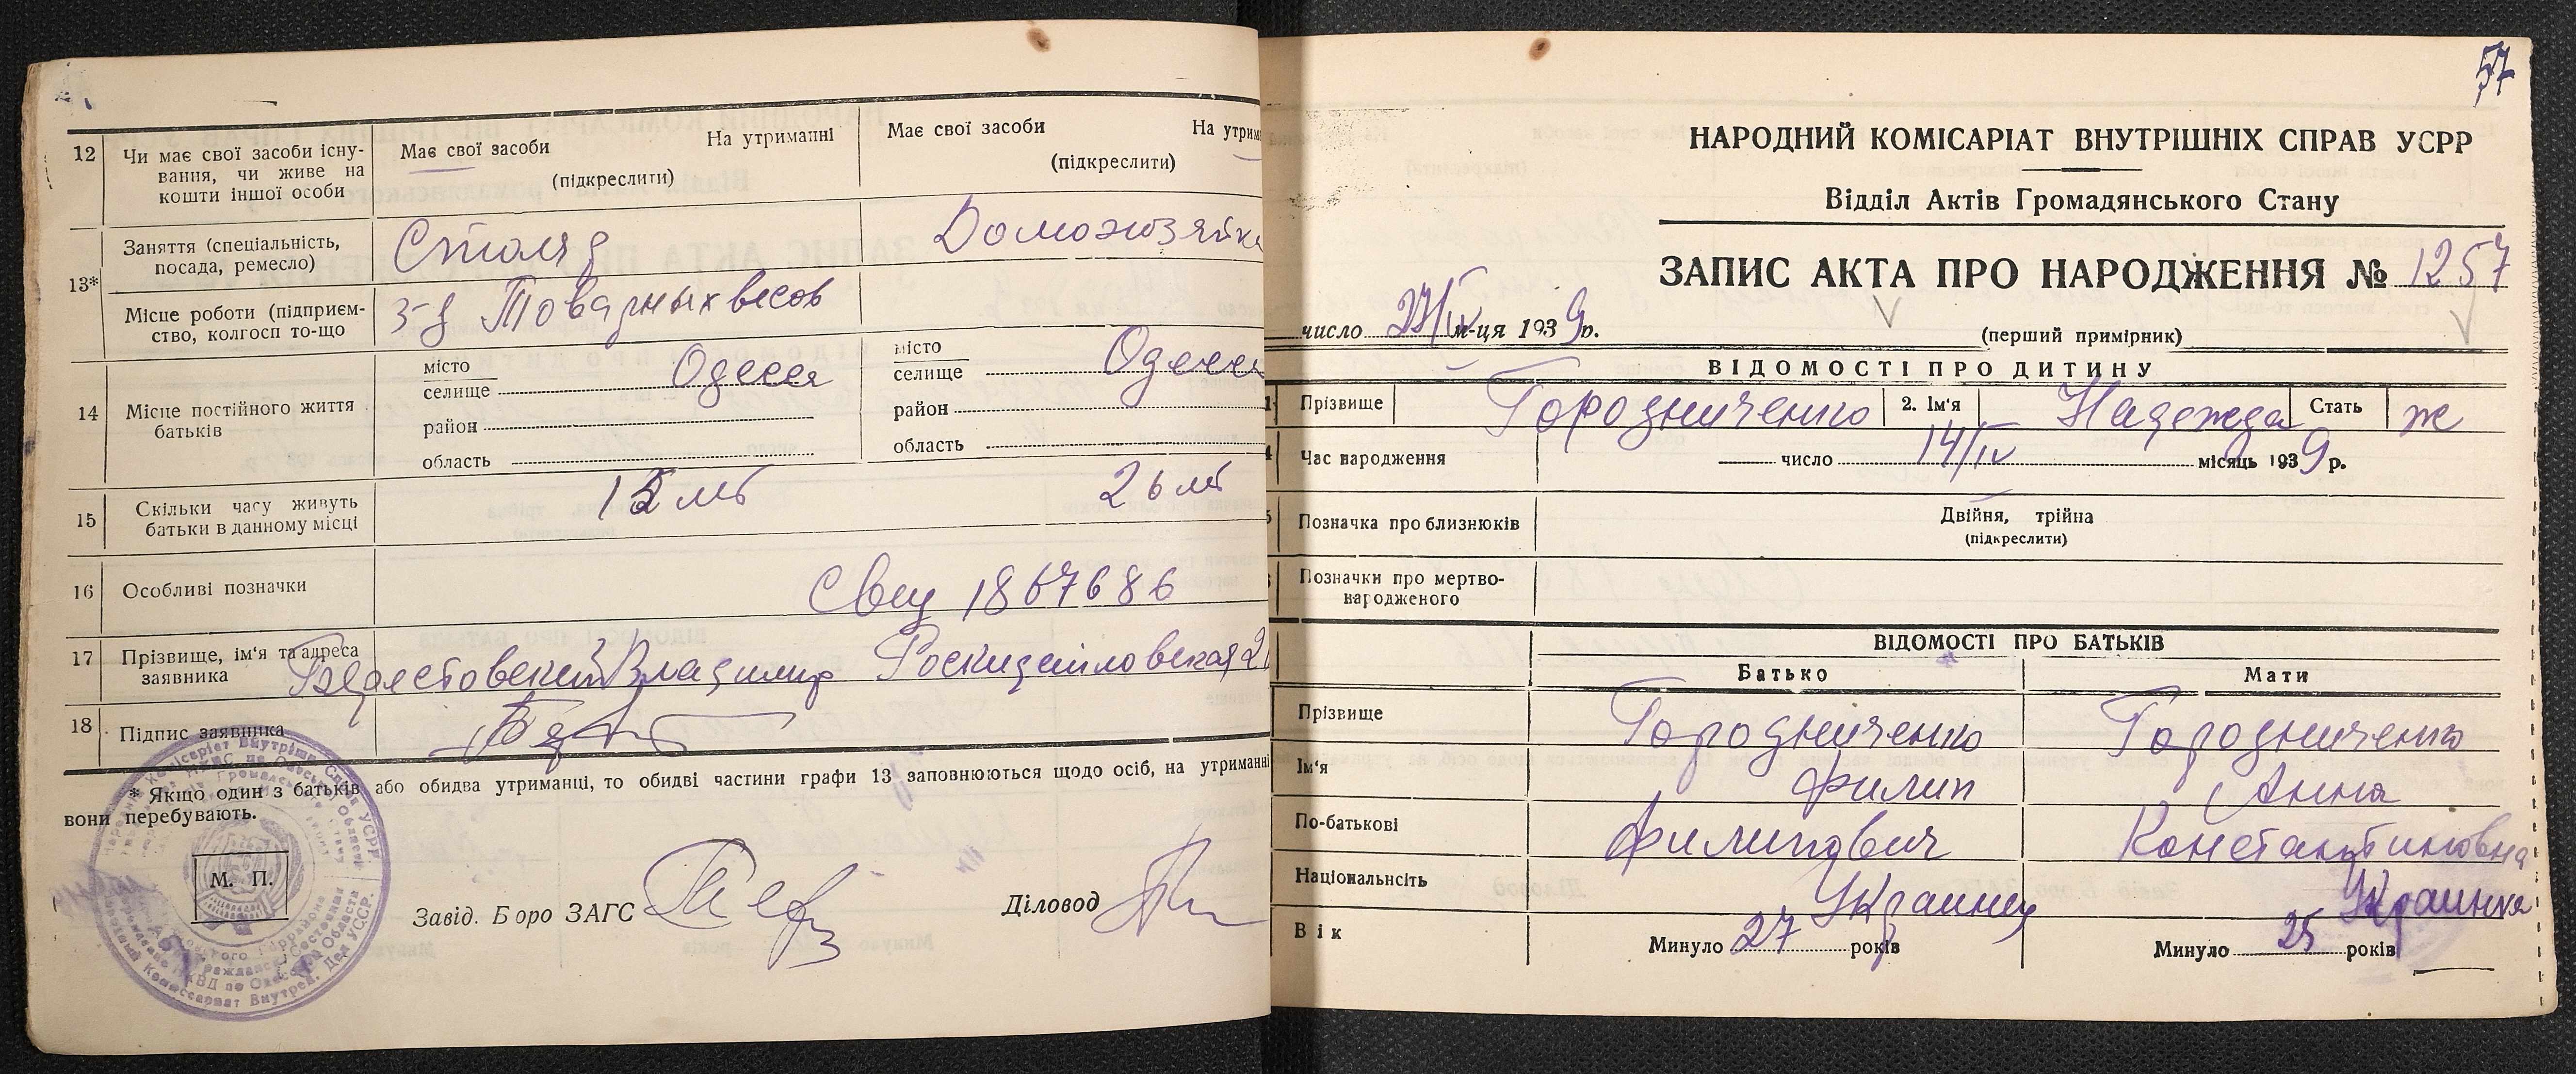 12 Чи має свої засоби існування, чи живе на кошти іншої особи
Має свої засоби На утриманні
(підкреслити)
Має свої засоби На утрим
(підкреслити)
13* Заняття (спеціальність, посада, ремесло)
Столяр
Домохозяйка
Місце роботи (підприємство, колгосп то-що
з-д Товарных весов
14 Місце постійного життя батьків
місто
селище Одесса
район
область
місто
селище Одесса
район
область
15 Скільки часу живуть батьки в данному місці
15 лет
26 лет
16 Особливі позначки
1867686
17 Прізвище, ім'я та адреса заявника
Владимир
18 Підпис заявника
* Якщо один з батьків або обидва утриманці, то обидві частини графи 13 заповнюються щодо осіб, на утриманні
вони перебувають.
М. П.
Завід. Боро ЗАГС
Діловод
57
НАРОДНИЙ КОМІСАРІАТ ВНУТРІШНІХ СПРАВ УСРР
Відділ Актів Громадянського Стану
ЗАПИС АКТА ПРО НАРОДЖЕННЯ № 1257
число м-ця 1939 р.
(перший примірник)
ВІДОМОСТІ ПРО ДИТИНУ
1 Прізвище Городниченко 2. Ім'я Надежда Стать ж
4 Час народження число 14/IV місяць 1939 р.
5 Позначка про близнюків
Двійня, трійна
(підкреслити)
Позначки про мертвонародженого
ВІДОМОСТІ ПРО БАТЬКІВ
Батько Мати
Прізвище Городниченко Городниченко
Ім'я Филип Анна
По-батькові Филипович Константиновна
Національнсіть Украинец Украинка
Вік Минуло 27 років Минуло 25 років